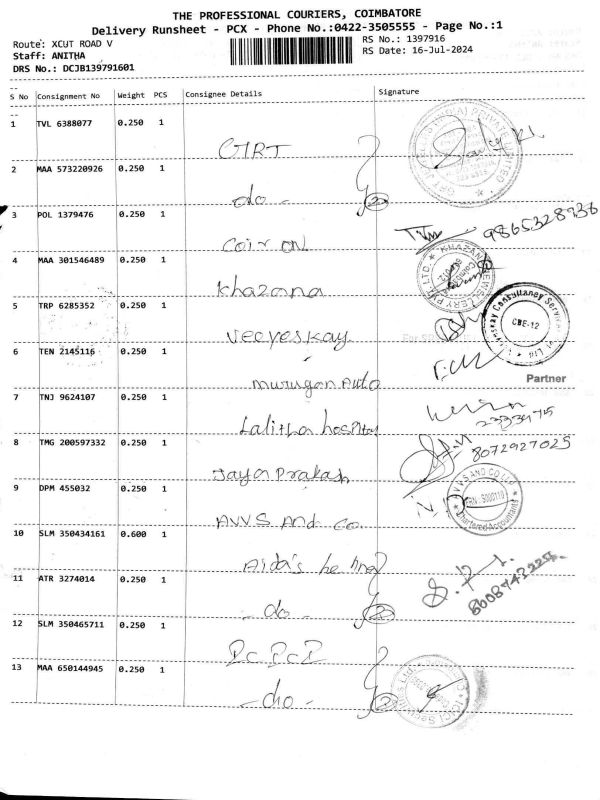 THE PROFESSIONAL COURIERS, COIMBATORE
Delivery Runsheet - PCX - Phone No.:0422-3505555 - Page No.:1
Route: XCUT ROAD V RS No.: 1397916
Staff: ANITHA RS Date: 16-Jul-2024
DRS No.: DCJB139791601
S No Consignment No Weight PCS Consignee Details Signature
1 TVL 6388077 0.250 1
2 MAA 573220926 0.250 1 do -
3 POL 1379476 0.250 1 Coir on 9865328936
4 MAA 301546489 0.250 1 Khazana
5 TRP 6285352 0.250 1 Veeyeskay CBE-12
6 TEN 2145116 0.250 1 murugan Auto
Partner
7 TNJ 9624107 0.250 1 Lalitha hospital
8 TMG 200597332 0.250 1 Jaya Prakash 8072927025
9 DPM 455032 0.250 1 AVVS And Co AVVS AND CO LLP Chartered Accountants
10 SLM 350434161 0.600 1
11 ATR 3274014 0.250 1 - do - 2
12 SLM 350465711 0.250 1
13 MAA 650144945 0.250 1 - do - 2